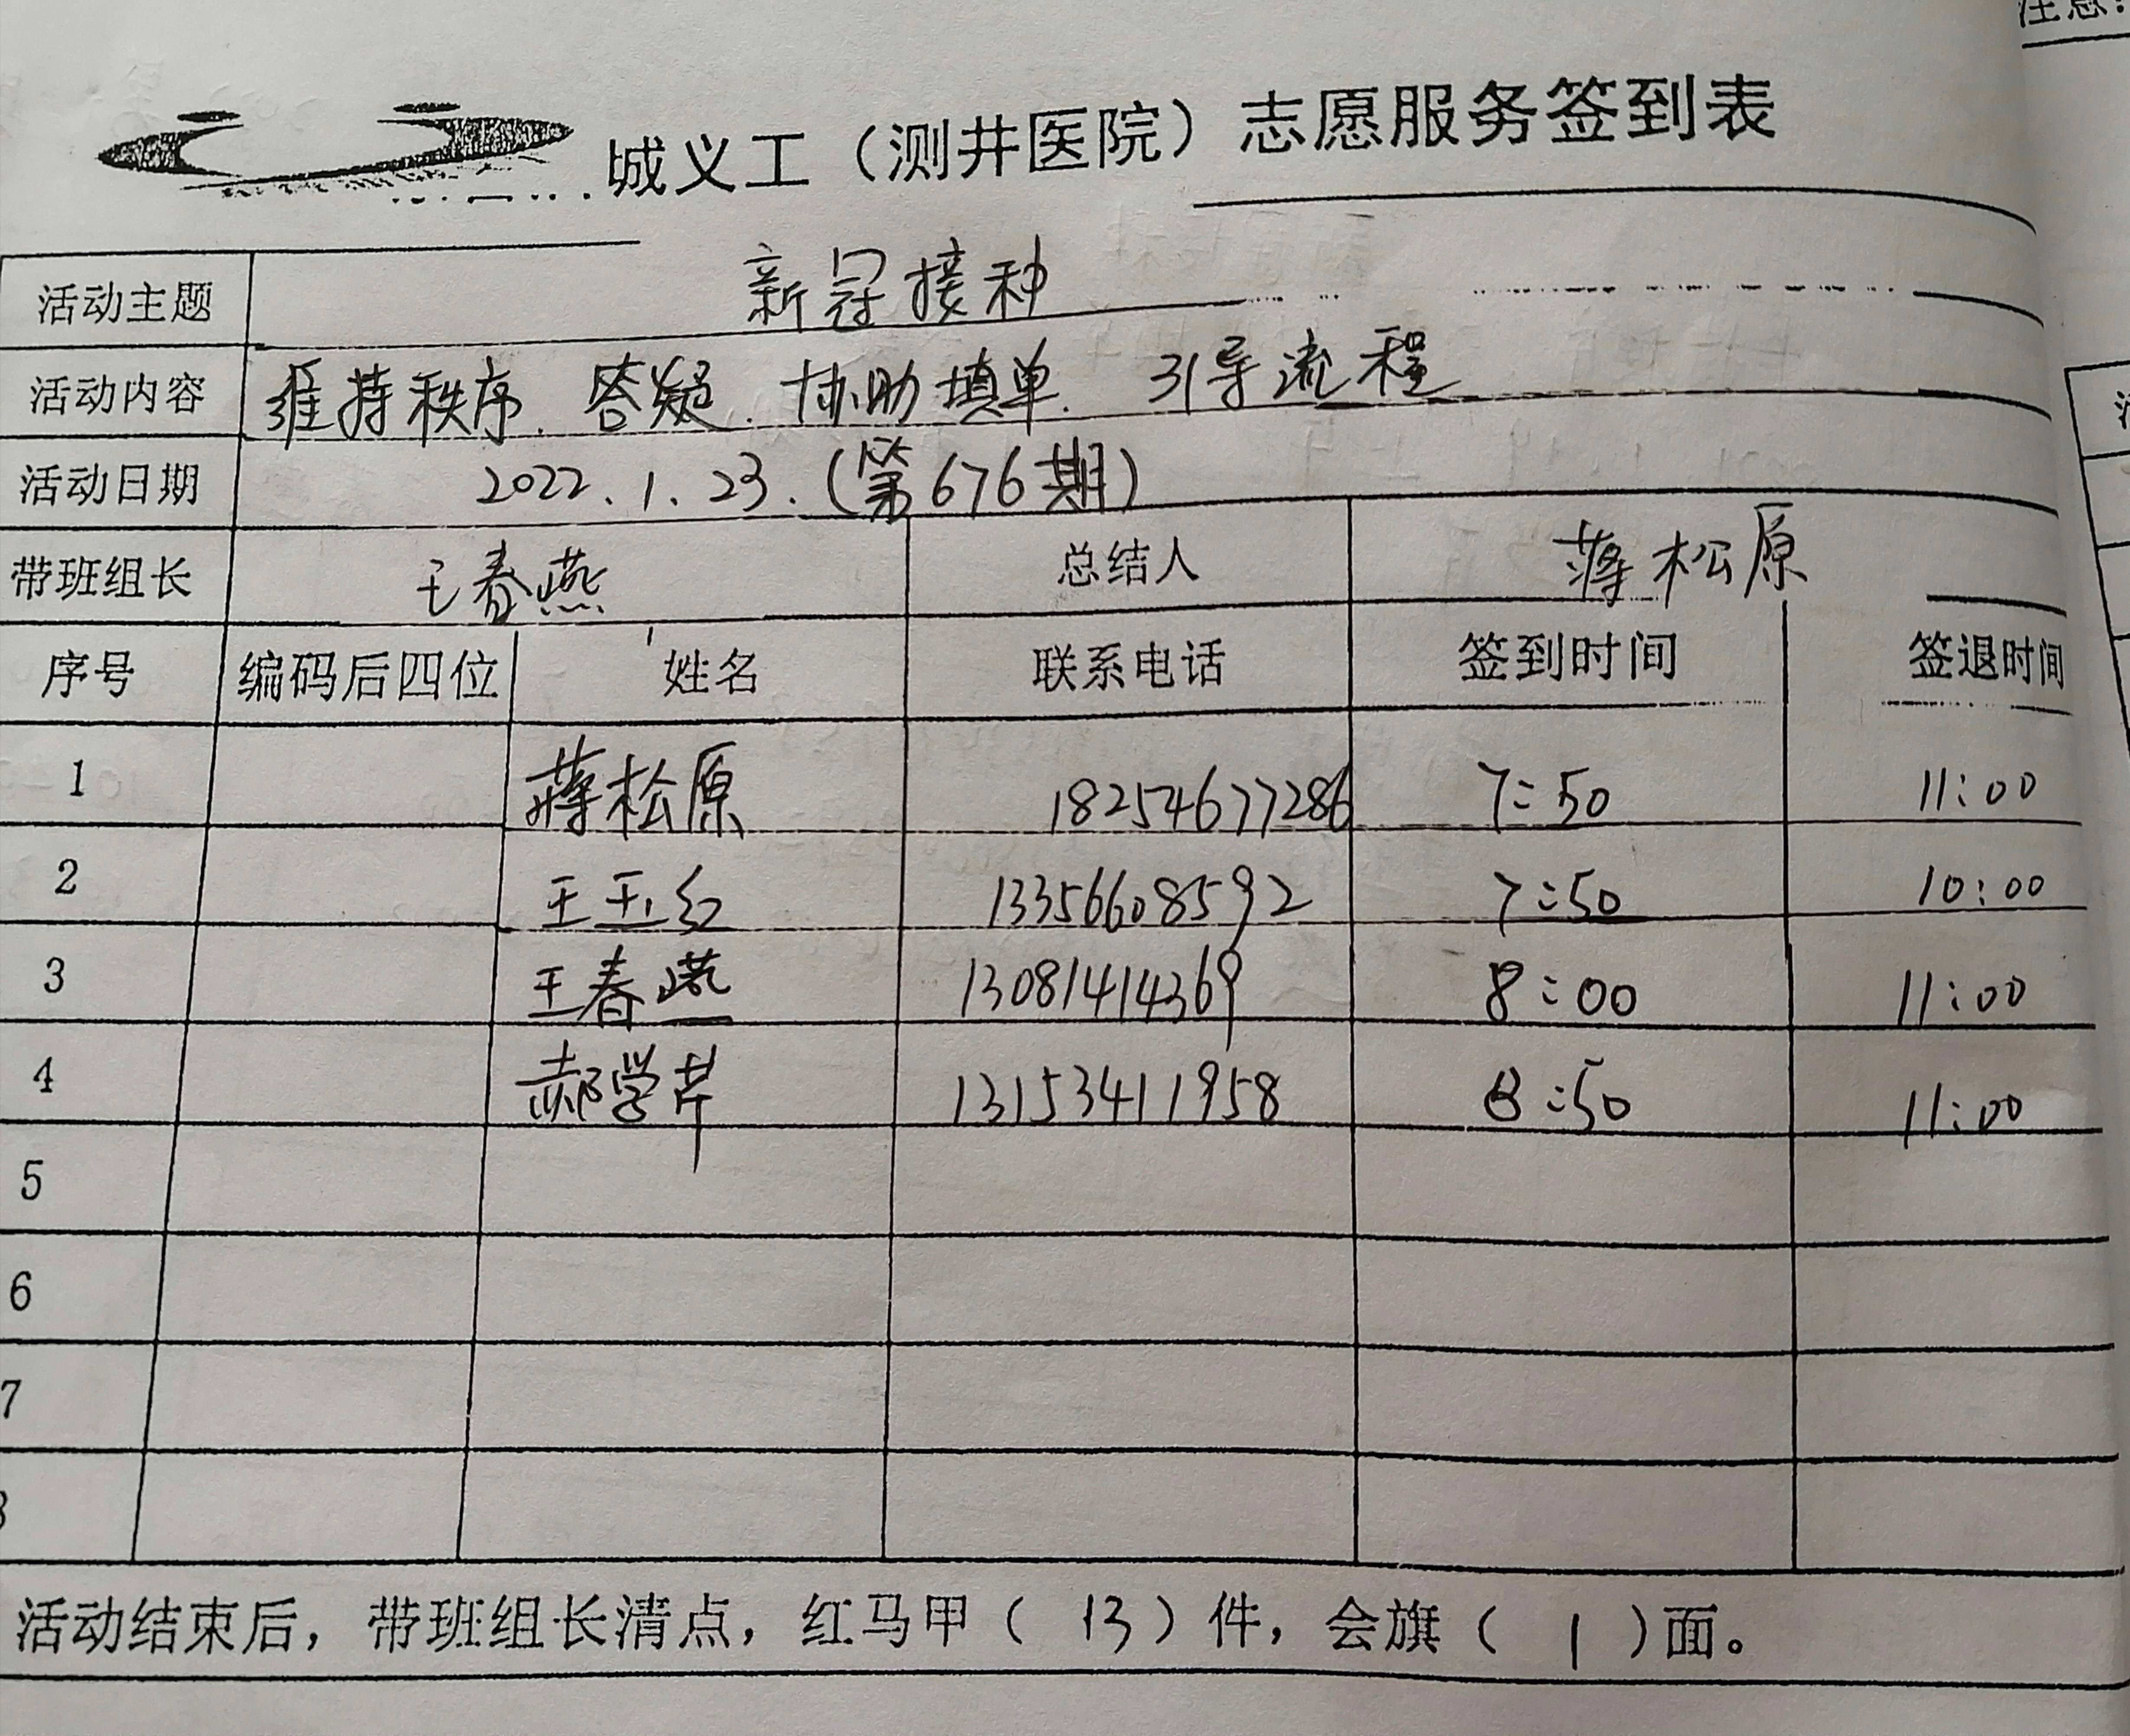 注意:
城义工（测井医院）志愿服务签到表
活动主题 新冠接种
活动内容 维持秩序. 答疑. 协助填单. 引导流程
活动日期 2022.1.23.(第676期)
带班组长 王春燕 总结人 蒋松原
序号 编码后四位 姓名 联系电话 签到时间 签退时间
1 蒋松原 18254677286 7:50 11:00
2 王玉红 13356608592 7:50 10:00
3 王春燕 13081414369 8:00 11:00
4 郝学芹 13153411958 8:50 11:00
5
6
7
活动结束后，带班组长清点，红马甲（13）件，会旗（1）面。